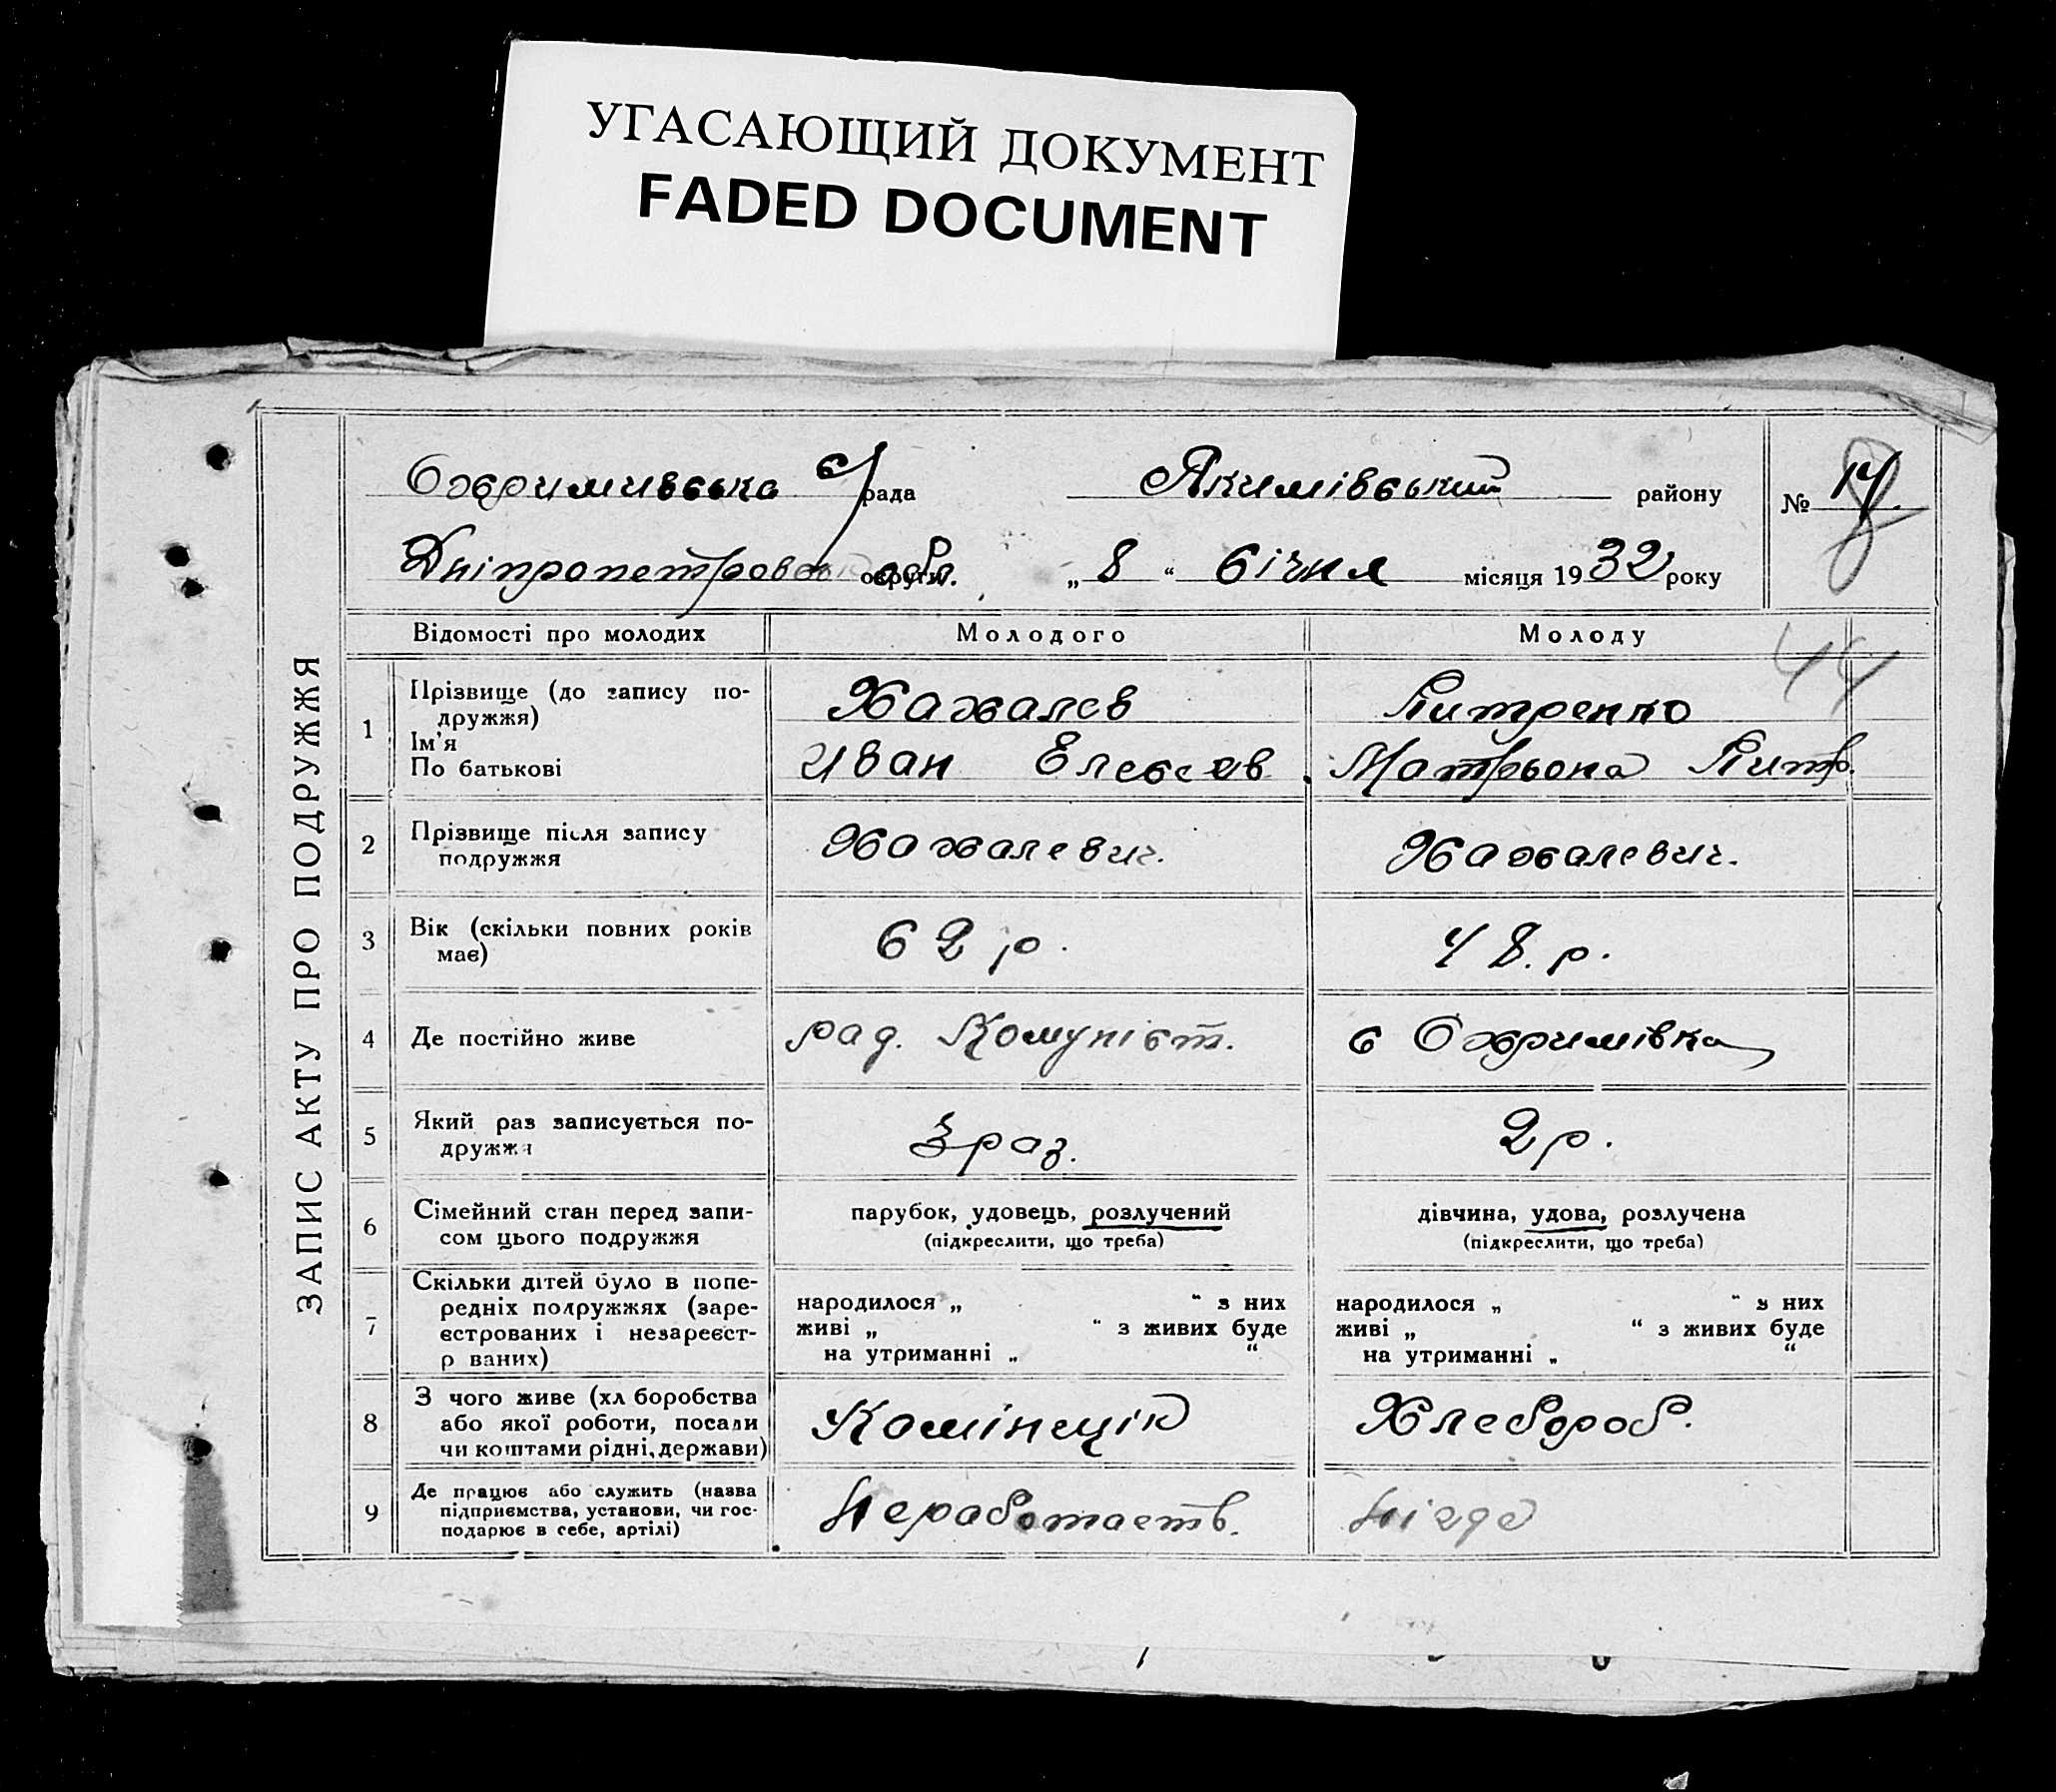 УГАСАЮЩИЙ ДОКУМЕНТ
FADED DOCUMENT
ЗАПИС АКТУ ПРО ПОДРУЖЖЯ
Охримивська с/рада Якимівський району №
Дніпропетровськ округи обл. „ 8 “ Січня місяця 1932 року
Відомості про молодих Молодого Молоду
44
1 Прізвище (до запису подружжя) Хахалев Титренко
Ім'я Иван Матрьона
По батькові Елесеев Титр.
2 Прізвище після запису Хахалевич. Хахалевич.
подружжя
3 Вік (скільки повних років 62 р. 48. р.
має)
4 Де постійно живе рад. Комуніст. с Охримівка
5 Який раз записується по- 3 раз. 2 р.
дружжя
6 Сімейний стан перед запи- парубок, удовець, розлучений дівчина, удова, розлучена
сом цього подружжя (підкреслити, що треба) (підкреслити, що треба)
7 Скільки дітей було в попе-
редніх подружжях (заре- народилося „ “ з них народилося „ “ з них
єстрованих і незареєст- живі „ “ з живих буде живі „ “ з живих буде
р ваних) на утриманні „ “ на утриманні „ “
8 З чого живе (хл боробства
або якої роботи, посади Комінщік Хлебороб.
чи коштами рідні, держави)
9 Де працює або служить (назва
підприємства, установи, чи гос- Неработаеть. Нігде
подарює в себе, артілі)